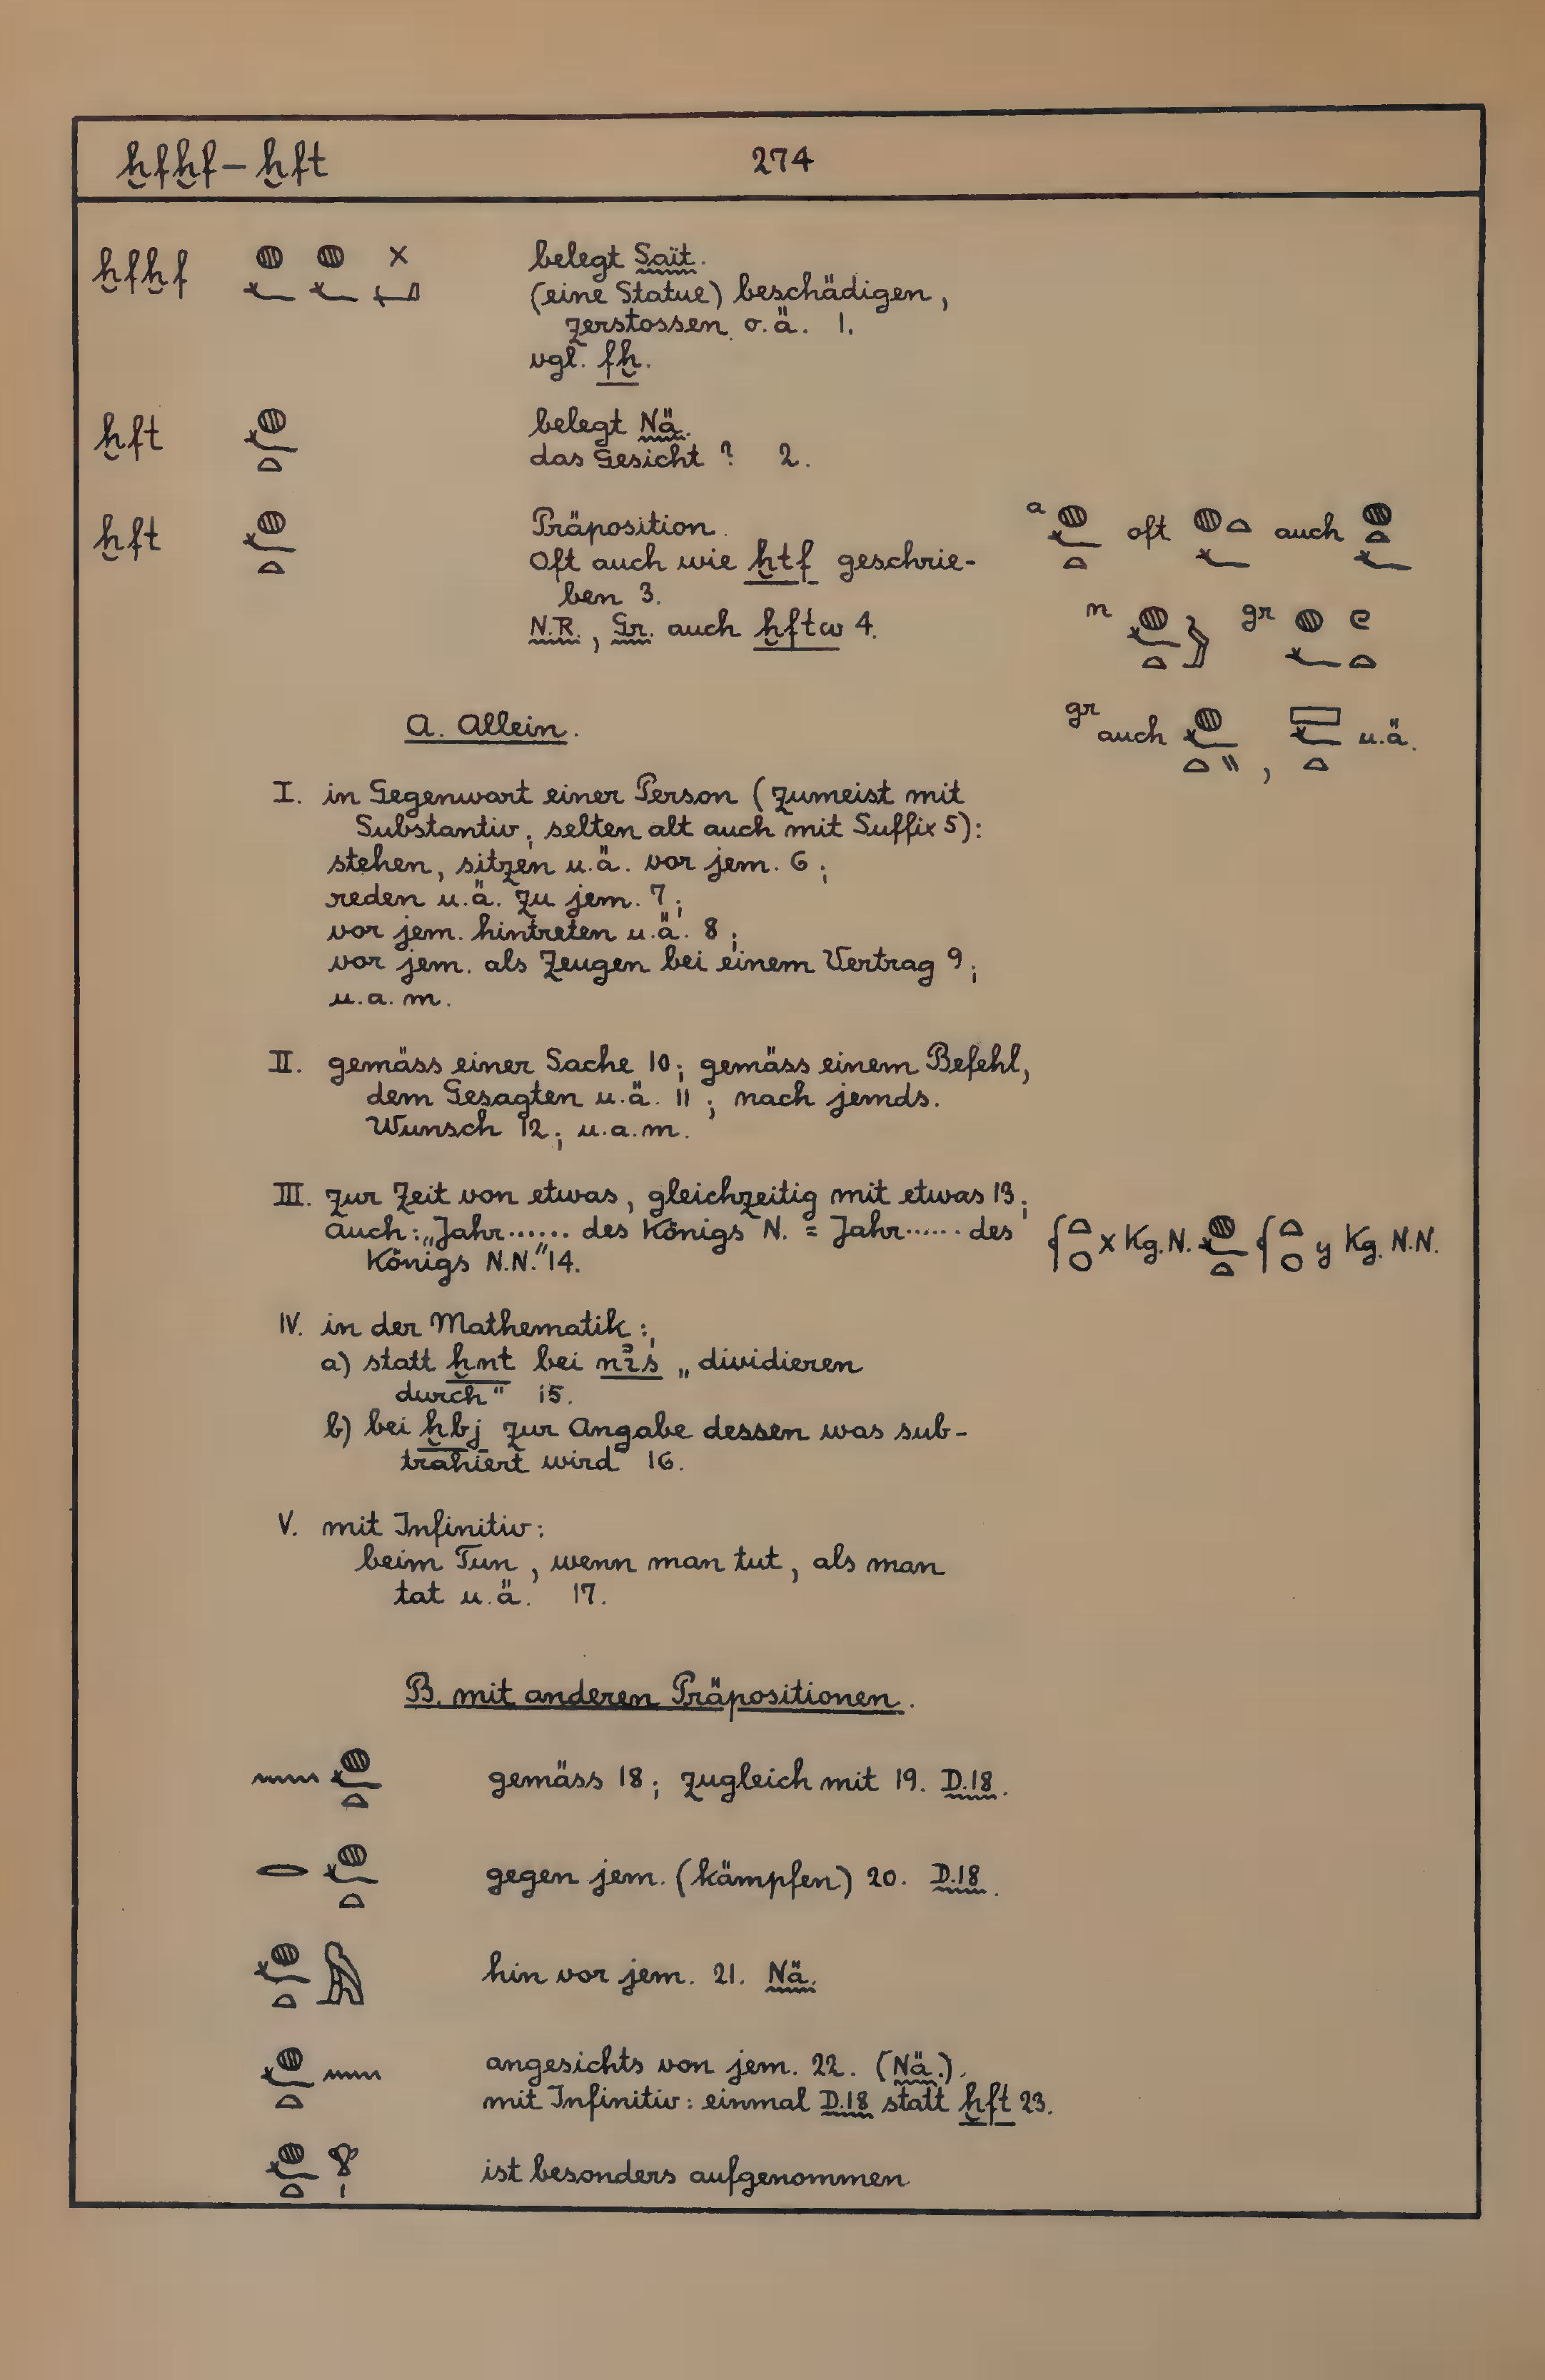 ḫfḫf – ḫft 274
ḫfḫf belegt Saït.
(eine Statue) beschädigen,
zerstossen o.ä. 1.
vgl. fḫ.
ḫft belegt Nä.
das Gesicht ? 2.
ḫft Präposition.
Oft auch wie ḫtf geschrie-
ben 3.
N.R., Gr. auch ḫftw 4.
a oft auch
n gr
gr auch , u.ä.
A. Allein.
I. in Gegenwart einer Person (zumeist mit
Substantiv; selten alt auch mit Suffix 5):
stehen, sitzen u.ä. vor jem. 6;
reden u.ä. zu jem. 7;
vor jem. hintreten u.ä. 8;
vor jem. als Zeugen bei einem Vertrag 9;
u.a.m.
II. gemäss einer Sache 10; gemäss einem Befehl,
dem Gesagten u.ä. 11; nach jemds.
Wunsch 12; u.a.m.
III. zur Zeit von etwas, gleichzeitig mit etwas 13;
auch: „Jahr...... des Königs N. = Jahr...... des
Königs N.N.“ 14.
x Kg. N. y Kg. N.N.
IV. in der Mathematik:
a) statt ḫnt bei nꜣś „dividieren
durch“ 15.
b) bei ḫbj zur Angabe dessen was sub-
trahiert wird 16.
V. mit Infinitiv:
beim Tun, wenn man tut, als man
tat u.ä. 17.
B. mit anderen Präpositionen.
gemäss 18; zugleich mit 19. D.18.
gegen jem. (kämpfen) 20. D.18.
hin vor jem. 21. Nä.
angesichts von jem. 22. (Nä.).
mit Infinitiv: einmal D.18 statt ḫft 23.
ist besonders aufgenommen